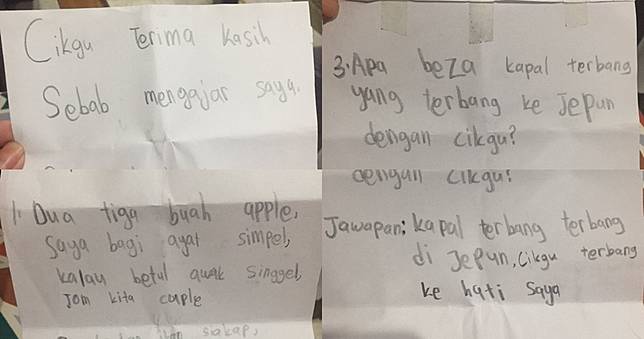 Cikgu Terima Kasih
Sebab mengajar saya.
1. Dua tiga buah apple,
saya bagi ayat simpel,
kalau betul awak singgel,
Jom kita cuple
ikan siakap,
3. Apa beza kapal terbang
yang terbang ke Jepun
dengan cikgu?
dengan cikgu?
Jawapan: kapal terbang terbang
di Jepun, cikgu terbang
ke hati saya